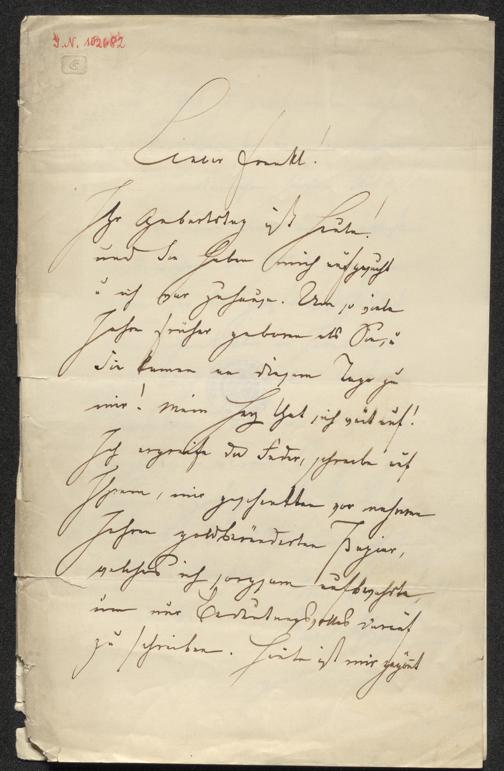 I.N. 102682
Lieber Frankl!
Ihr Geburtstag ist heute!
und Sie haben mich aufgesucht
u ich war zuhause. Um so viele
Jahre früher geboren als Sie, u
Sie kamen an diesem Tage zu
mir! Mein Herz that sich weit auf!
Ich ergreife die Feder, schreibe auf
Ihrem, mir geschenkten vor mehreren
Jahren goldberänderten Papier,
welches ich sorgsam aufbewahrte,
um nur Bedeutungsvolles darauf
zu schreiben. Heute ist mir